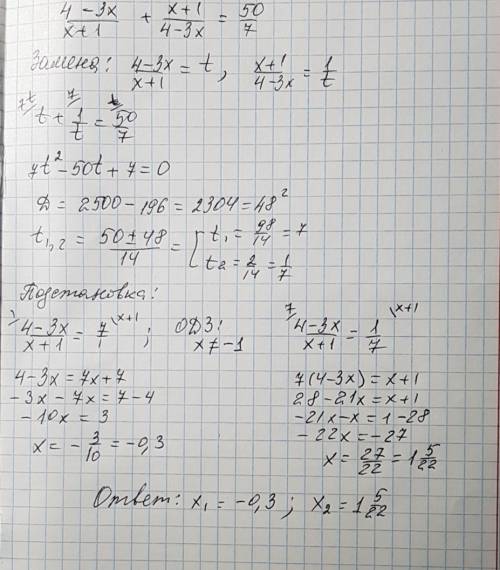 (4-3x)/(x+1) + (x+1)/(4-3x) = 50/7
Замена: (4-3x)/(x+1) = t, (x+1)/(4-3x) = 1/t
7t/ t + 7/ 1/t = t/ 50/7
7t² - 50t + 7 = 0
Д = 2500 - 196 = 2304 = 48²
t₁,₂ = (50 ± 48)/14 = [ t₁ = 98/14 = 7
t₂ = 2/14 = 1/7
Подстановка:
(4-3x)/(x+1) = 7/1 \x+1 ; ОДЗ: x ≠ -1
4-3x = 7x+7
-3x - 7x = 7-4
-10x = 3
x = -3/10 = -0,3
7/ (4-3x)/(x+1) = 1/7 \x+1
7(4-3x) = x+1
28-21x = x+1
-21x-x = 1-28
-22x = -27
x = 27/22 = 1 5/22
Ответ: x₁ = -0,3 ; x₂ = 1 5/22